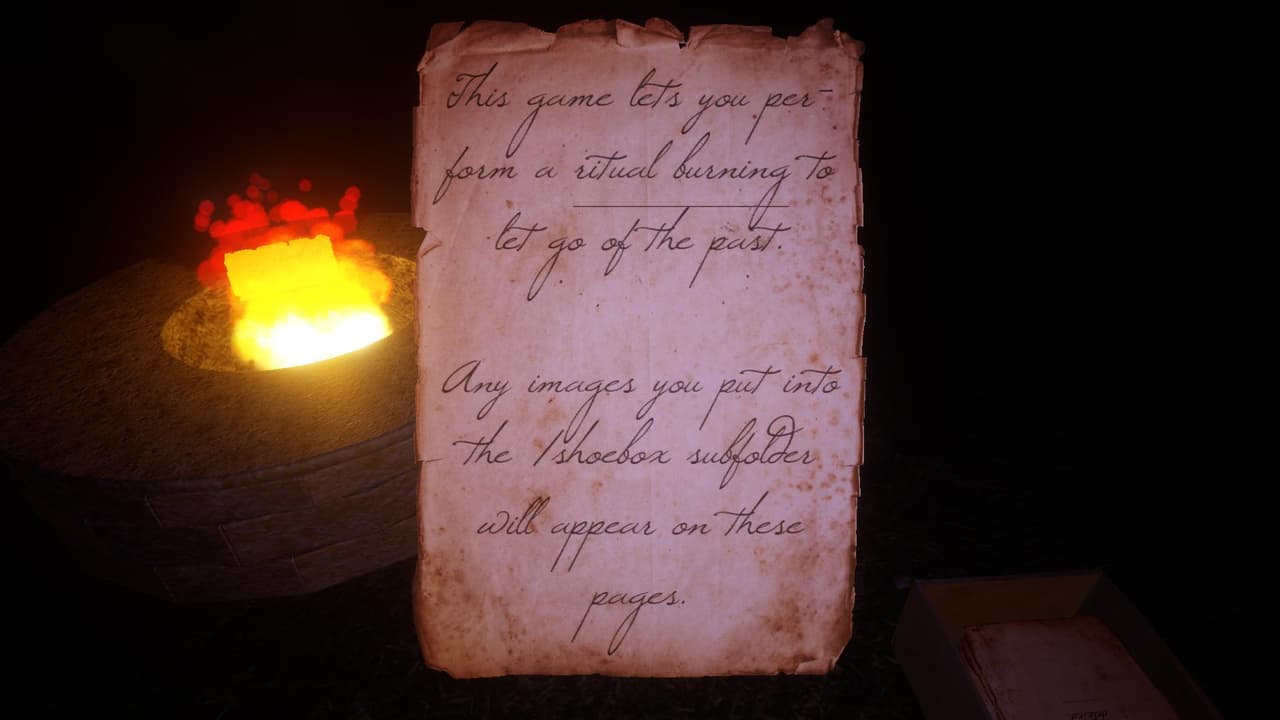 This game lets you per-
form a ritual burning to
let go of the past.
Any images you put into
the /shoebox subfolder
will appear on these
pages.